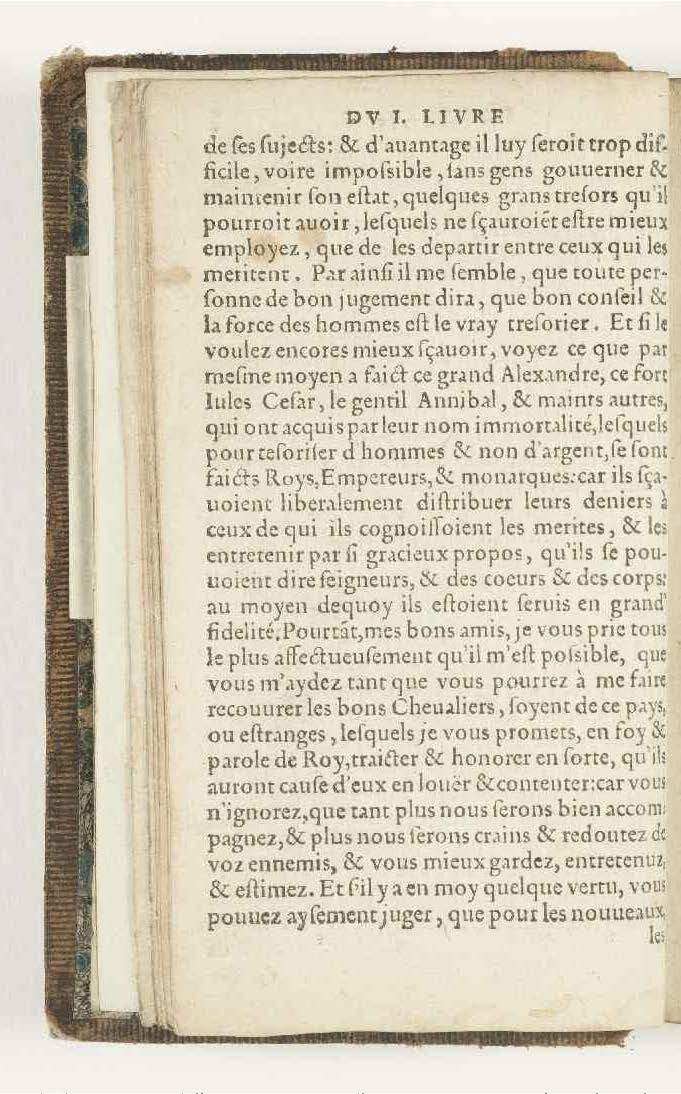 DV I. LIVRE
de ſes ſujects: & d'auantage il luy ſeroit trop dif-
ficile, voire impoſsible, ſans gens gouuerner &
maintenir ſon eſtat, quelques grans treſors qu'il
pourroit auoir, leſquels ne ſçauroiẽt eſtre mieux
employez, que de les departir entre ceux qui les
meritent. Par ainſi il me ſemble, que toute per-
ſonne de bon jugement dira, que bon conſeil &
la force des hommes eſt le vray treſorier. Et ſi le
voulez encores mieux ſçauoir, voyez ce que par
meſme moyen a faict ce grand Alexandre, ce fort
Iules Ceſar, le gentil Annibal, & maints autres,
qui ont acquis par leur nom immortalité, leſquels
pour teſoriſer d'hommes & non d'argent, ſe ſont
faicts Roys, Empereurs, & monarques: car ils ſça-
uoient liberalement diſtribuer leurs deniers à
ceux de qui ils cognoiſſoient les merites, & les
entretenir par ſi gracieux propos, qu'ils ſe pou-
uoient dire ſeigneurs, & des coeurs & des corps:
au moyen dequoy ils eſtoient ſeruis en grand'
fidelité. Pourtãt, mes bons amis, je vous prie tous
le plus affectueuſement qu'il m'eſt poſsible, que
vous m'aydez tant que vous pourrez à me faire
recouurer les bons Cheualiers, ſoyent de ce pays,
ou eſtranges, leſquels je vous promets, en foy &
parole de Roy, traicter & honorer en ſorte, qu'ils
auront cauſe d'eux en louër & contenter: car vous
n'ignorez, que tant plus nous ſerons bien accom-
pagnez, & plus nous ſerons crains & redoutez de
voz ennemis, & vous mieux gardez, entretenuz,
& eſtimez. Et ſ'il y a en moy quelque vertu, vous
pouuez ayſement juger, que pour les nouueaux,
les